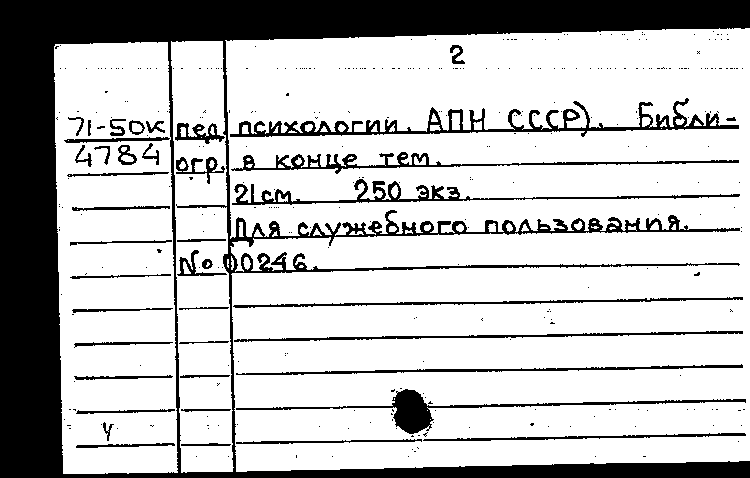 2
71-50к пед. психологии. АПН СССР). Библи-
4784 огр. в конце тем.
21см. 250 экз.
Для служебного пользования.
№ 00246.